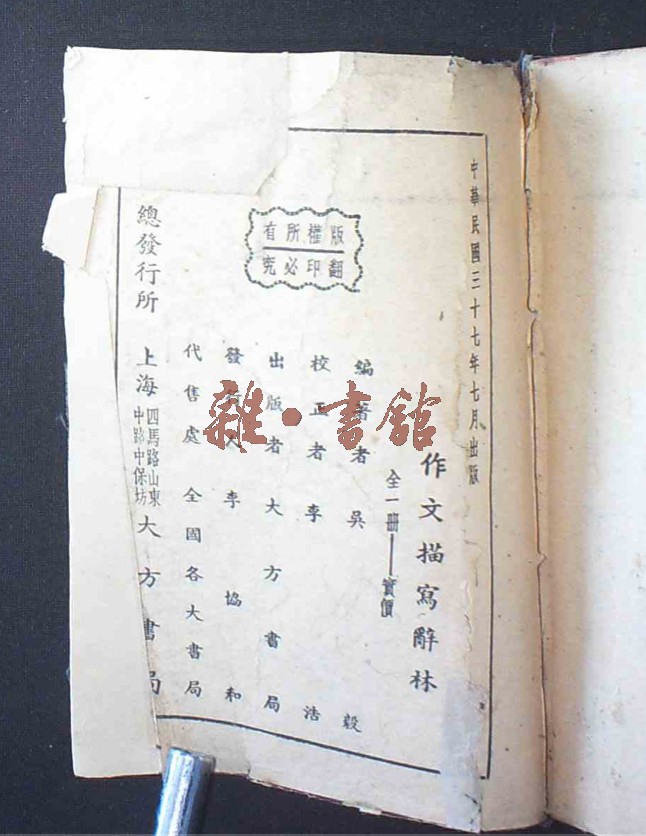 中華民國三十七年七月出版
作文描寫辭林
全一冊——實價
版權所有
翻印必究
編著者 吳毅
校正者 李浩
出版者 大方書局
發行人 李協和
代售處 全國各大書局
總發行所 上海 四馬路山東
中路中保坊 大方書局
雜·書館